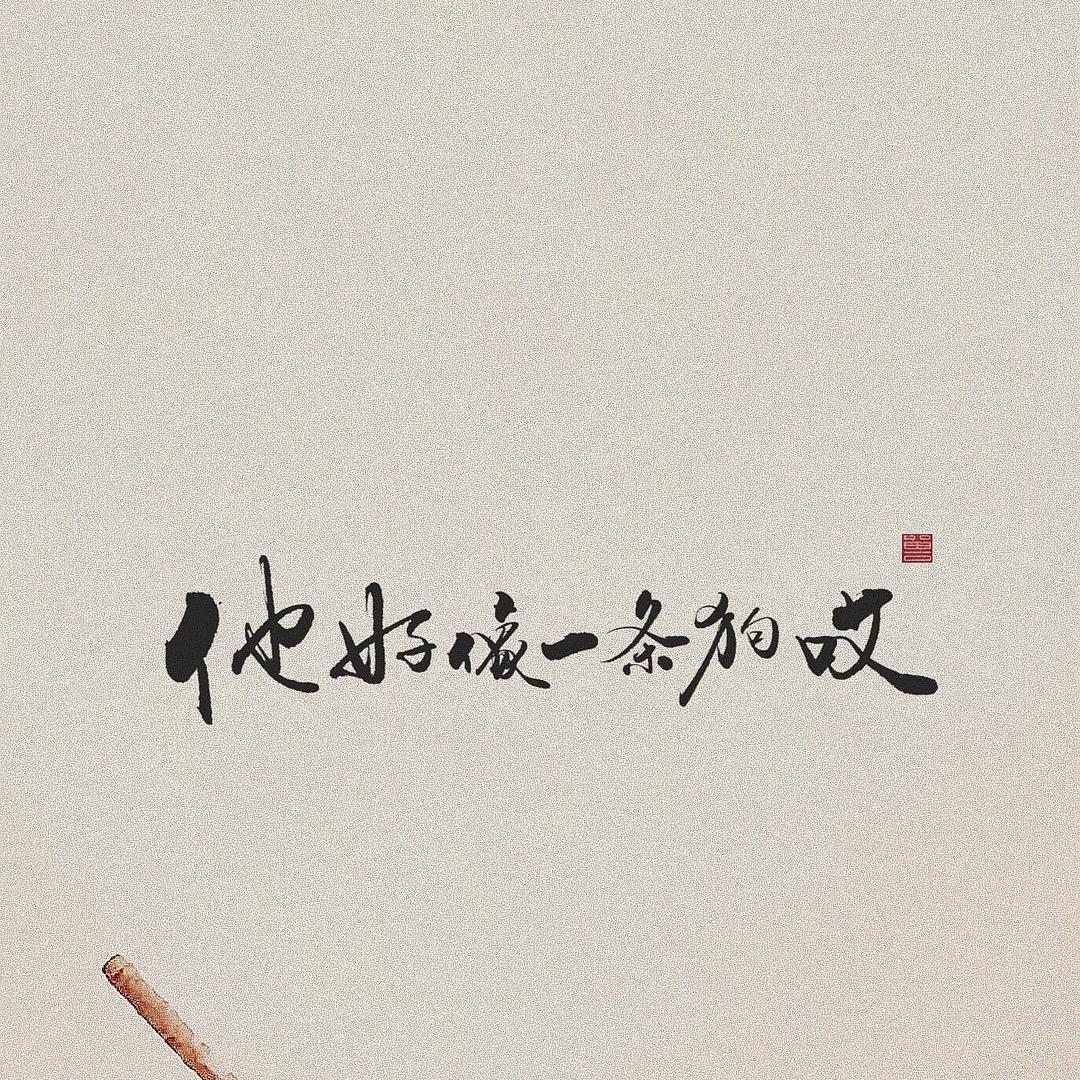 他好像一条狗哎